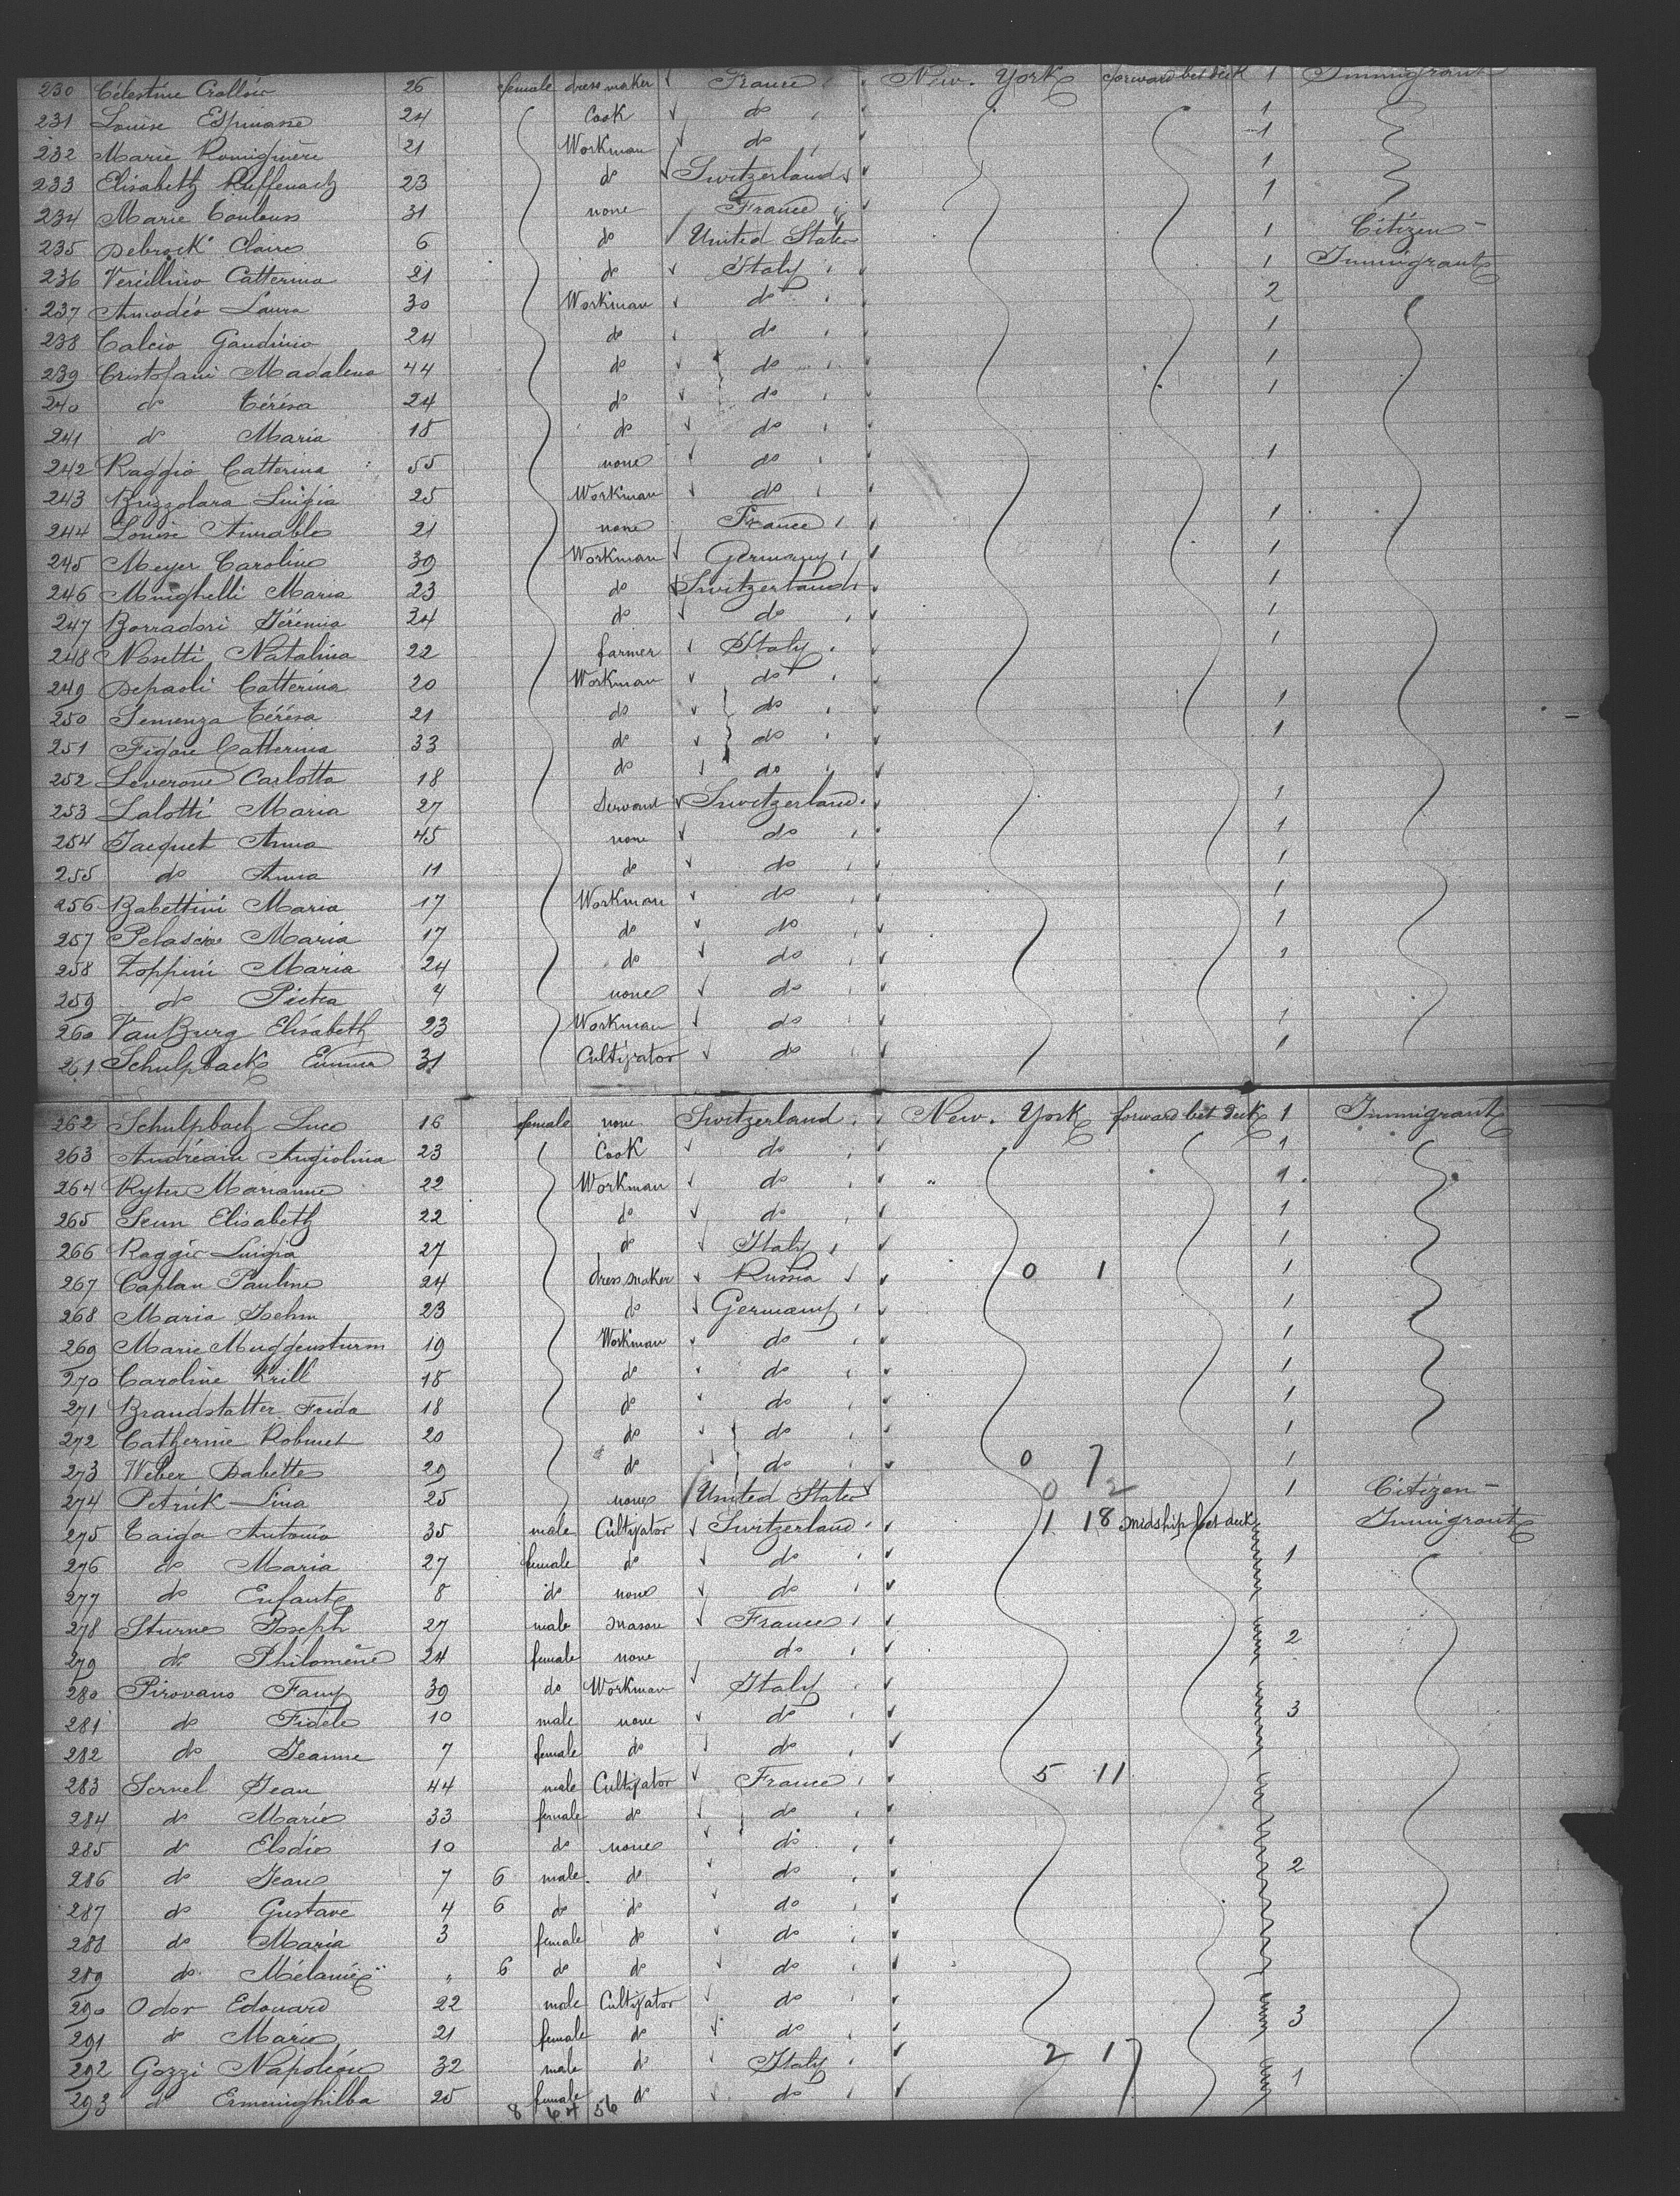 230 Célestine 26 female dress maker France New York forward bet deck 1 Immigrant
231 Louise Espinasse 24 Cook do 1
232 Marie Romiguière 21 Workman do 1
233 Elisabeth Ruffenach 23 do Switzerland 1
234 Marie 31 none France 1
235 Debrock Claire 6 do United States 1 Citizen
236 Catterina 21 do Italy 1 Immigrant
237 Amodéo Laura 30 Workman do 2
238 Calcio Gaudino 24 do do 1
239 Cristofani Madalena 44 do do 1
240 do Térésa 24 do do 1
241 do Maria 18 do do
242 Raggio Catterina 55 none do 1
243 Brizzolara Luigia 25 Workman do
244 Louise Aimable 21 none France 1
245 Meyer Caroline 39 Workman Germany 1
246 Minghelli Maria 23 do Switzerland 1
247 Borradori 34 do do 1
248 Nosetti Natalina 22 farmer Italy 1
249 Depaoli Catterina 20 Workman do
250 Semenza Térésa 21 do do 1
251 Figone Catterina 33 do do 1
252 Leverone Carlotta 18 do do
253 Lalotti Maria 27 Servant Switzerland 1
254 Jacquet Anna 45 none do 1
255 do Anna 11 do do 1
256 Babettini Maria 17 Workman do 1
257 Maria 17 do do 1
258 Zoppini Maria 24 do do 1
259 do Pietra 4 none do
260 VanBurg Elisabeth 23 Workman do 1
261 Schulpback Emma 31 Cultivator do 1
262 Schulpbach Luce 16 female none Switzerland New York forward bet deck 1 Immigrant
263 Andréani Angiolina 23 Cook do 1
264 Ryter Marianne 22 Workman do 1
265 Elisabeth 22 do do 1
266 Raggio Luigia 27 do Italy 1
267 Caplan Pauline 24 dress maker Russia 0 1 1
268 Maria 23 do Germany 1
269 Marie Muggensturm 19 Workman do 1
270 Caroline Krill 18 do do 1
271 Brandstatter Frida 18 do do 1
272 Catherine Robinet 20 do do 1
273 Weber Babette 29 do do 0 7 1
274 Petrik Lina 25 none United States 0 2 1 Citizen
275 Caiga Antonio 35 male Cultivator Switzerland 1 18 midship bet deck Immigrant
276 do Maria 27 female do do 1
277 do Enfant 8 do none do
278 Sturne Joseph 27 male mason France 2
279 do Philomène 24 female none do
280 Pirovano Fany 39 do Workman Italy
281 do Fidèle 10 male none do 3
282 do Jeanne 7 female do do
283 Jean 44 male Cultivator France 5 11
284 do Marie 33 female do do
285 do 10 do none do
286 do Jean 7 6 male do do 2
287 do Gustave 4 6 do do do
288 do Maria 3 female do do
289 do Mélanie " 6 do do do
290 Odor Edouard 22 male Cultivator do 3
291 do Marie 21 female do do
292 Gozzi Napoléon 32 male do Italy 2 17 1
293 do 25 female do do
8 64 56